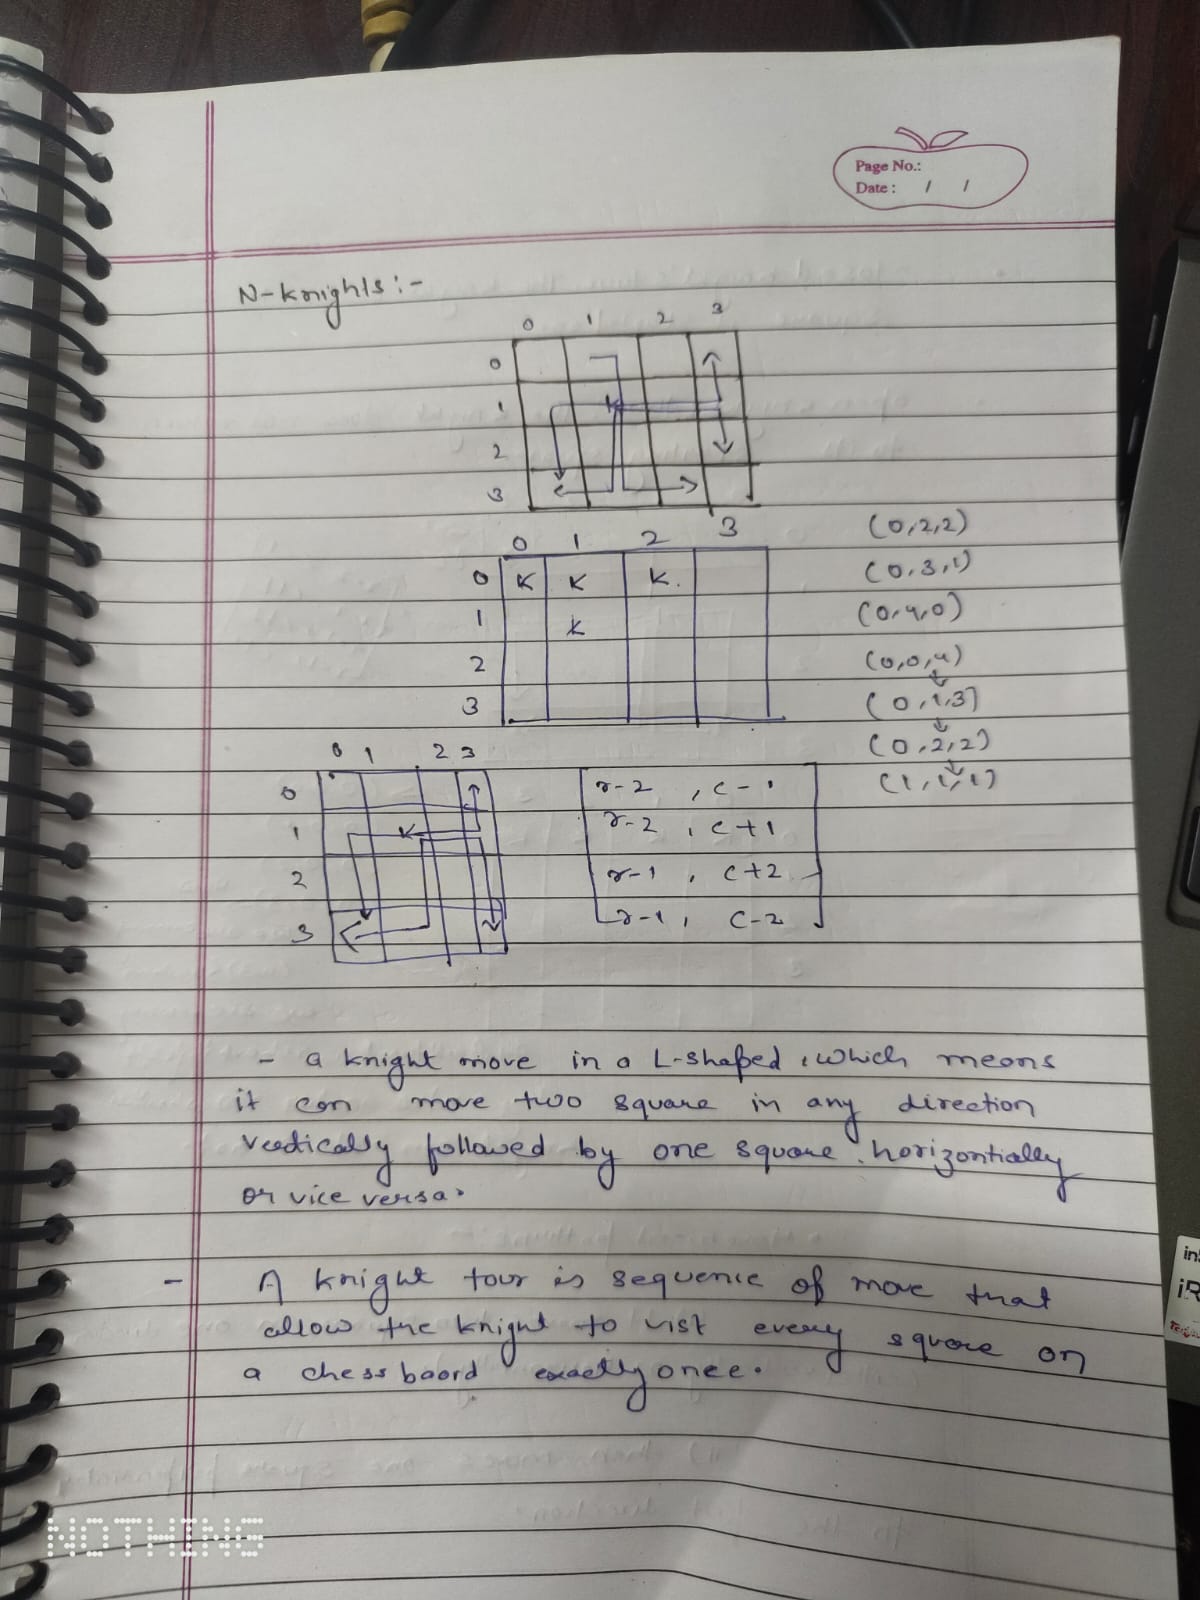 Page No.:
Date : / /
N-knights :-
0 1 2 3
0
1 K
2
3
0 1 2 3
0 K K K.
1 K
2
3
(0,2,2)
(0,3,1)
(0,4,0)
(0,0,4)
(0,1,3)
(0,2,2)
(1,1,1)
0 1 2 3
0
1 K
2
3
r-2 , c-1
r-2 , c+1
r-1 , c+2
r-1 , c-2
- a knight move in a L-shaped, which means
it can move two square in any direction
vertically followed by one square horizontially
or vice versa.
- A knight tour is sequence of move that
allow the knight to vist every square on
a chess board exactly once.
NOTHING
in
iR